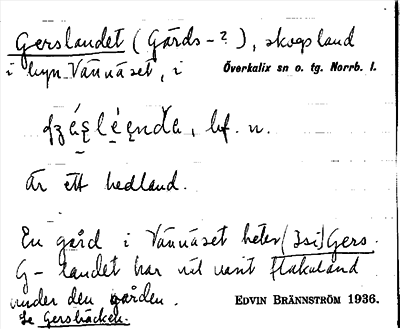 Gerslandet (Gårds-?), skogsland
i byn Vännäset, i Överkalix sn o. tg. Norrb. l.
bf. n.
Är ett hedland.
En gård i Vännäset heter (Jsi) Gers.
G-landet har väl varit flakaland
under den gården.
Se Gersbäcken. EDVIN BRÄNNSTRÖM 1936.